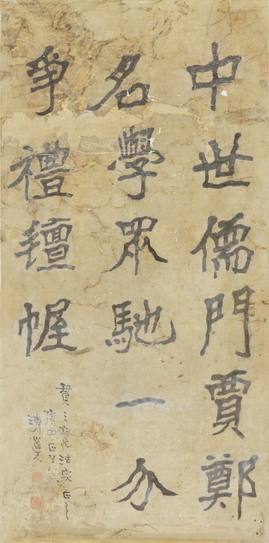 中世儒門賈鄭
名學眾馳一介
爭禮鐘幄